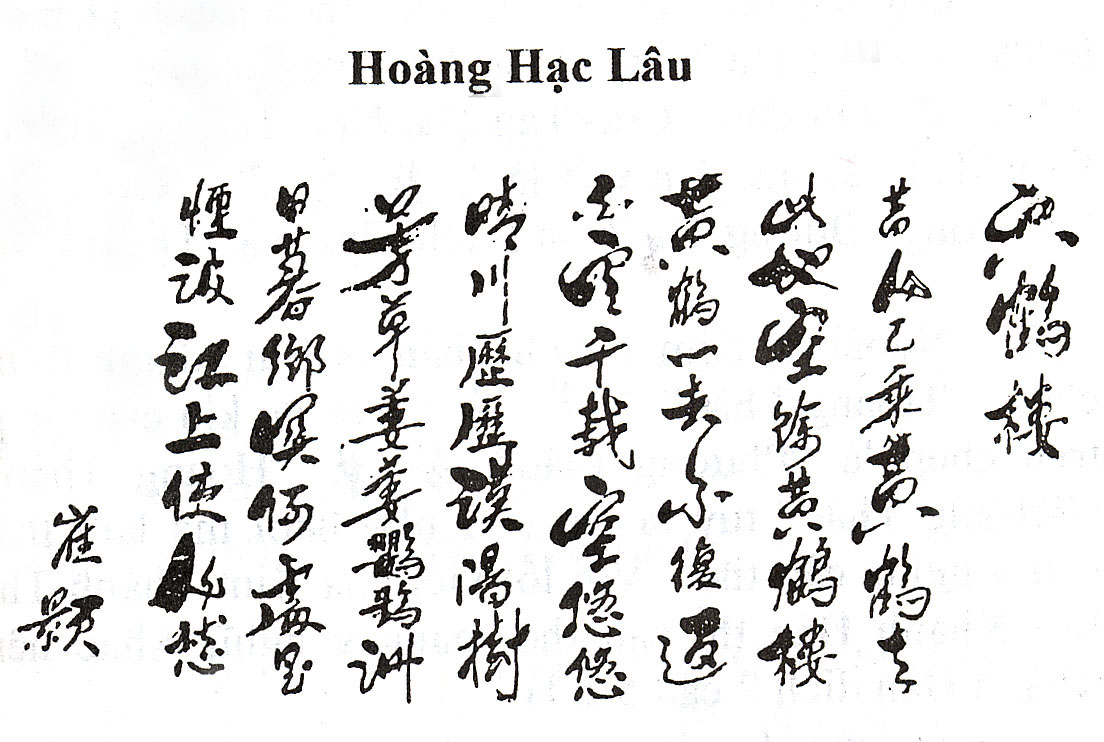 Hoàng Hạc Lâu
黃鶴樓
昔人已乘黃鶴去
此地空餘黃鶴樓
黃鶴一去不復返
白雲千載空悠悠
晴川歷歷漢陽樹
芳草萋萋鸚鵡洲
日暮鄉關何處是
煙波江上使人愁
崔顥